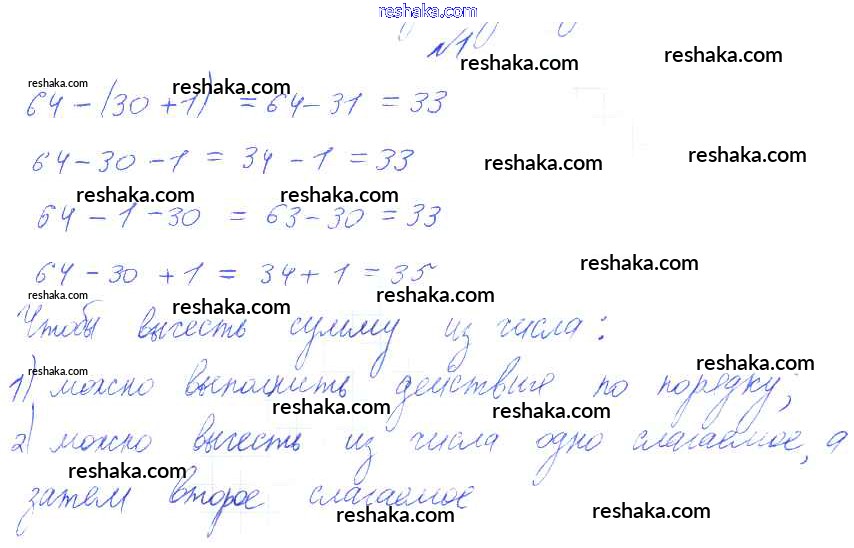 reshaka.com
№1
reshaka.com
reshaka.com
reshaka.com
64 - (30 + 1) = 64 - 31 = 33
64 - 30 - 1 = 34 - 1 = 33
reshaka.com
reshaka.com
reshaka.com
reshaka.com
64 - 1 - 30 = 63 - 30 = 33
reshaka.com
64 - 30 + 1 = 34 + 1 = 35
reshaka.com
reshaka.com
reshaka.com
Чтобы вычесть сумму из числа:
reshaka.com
1) можно выполнить действие по порядку;
reshaka.com
reshaka.com
2) можно вычесть из числа одно слагаемое, а
reshaka.com
затем второе слагаемое
reshaka.com
reshaka.com